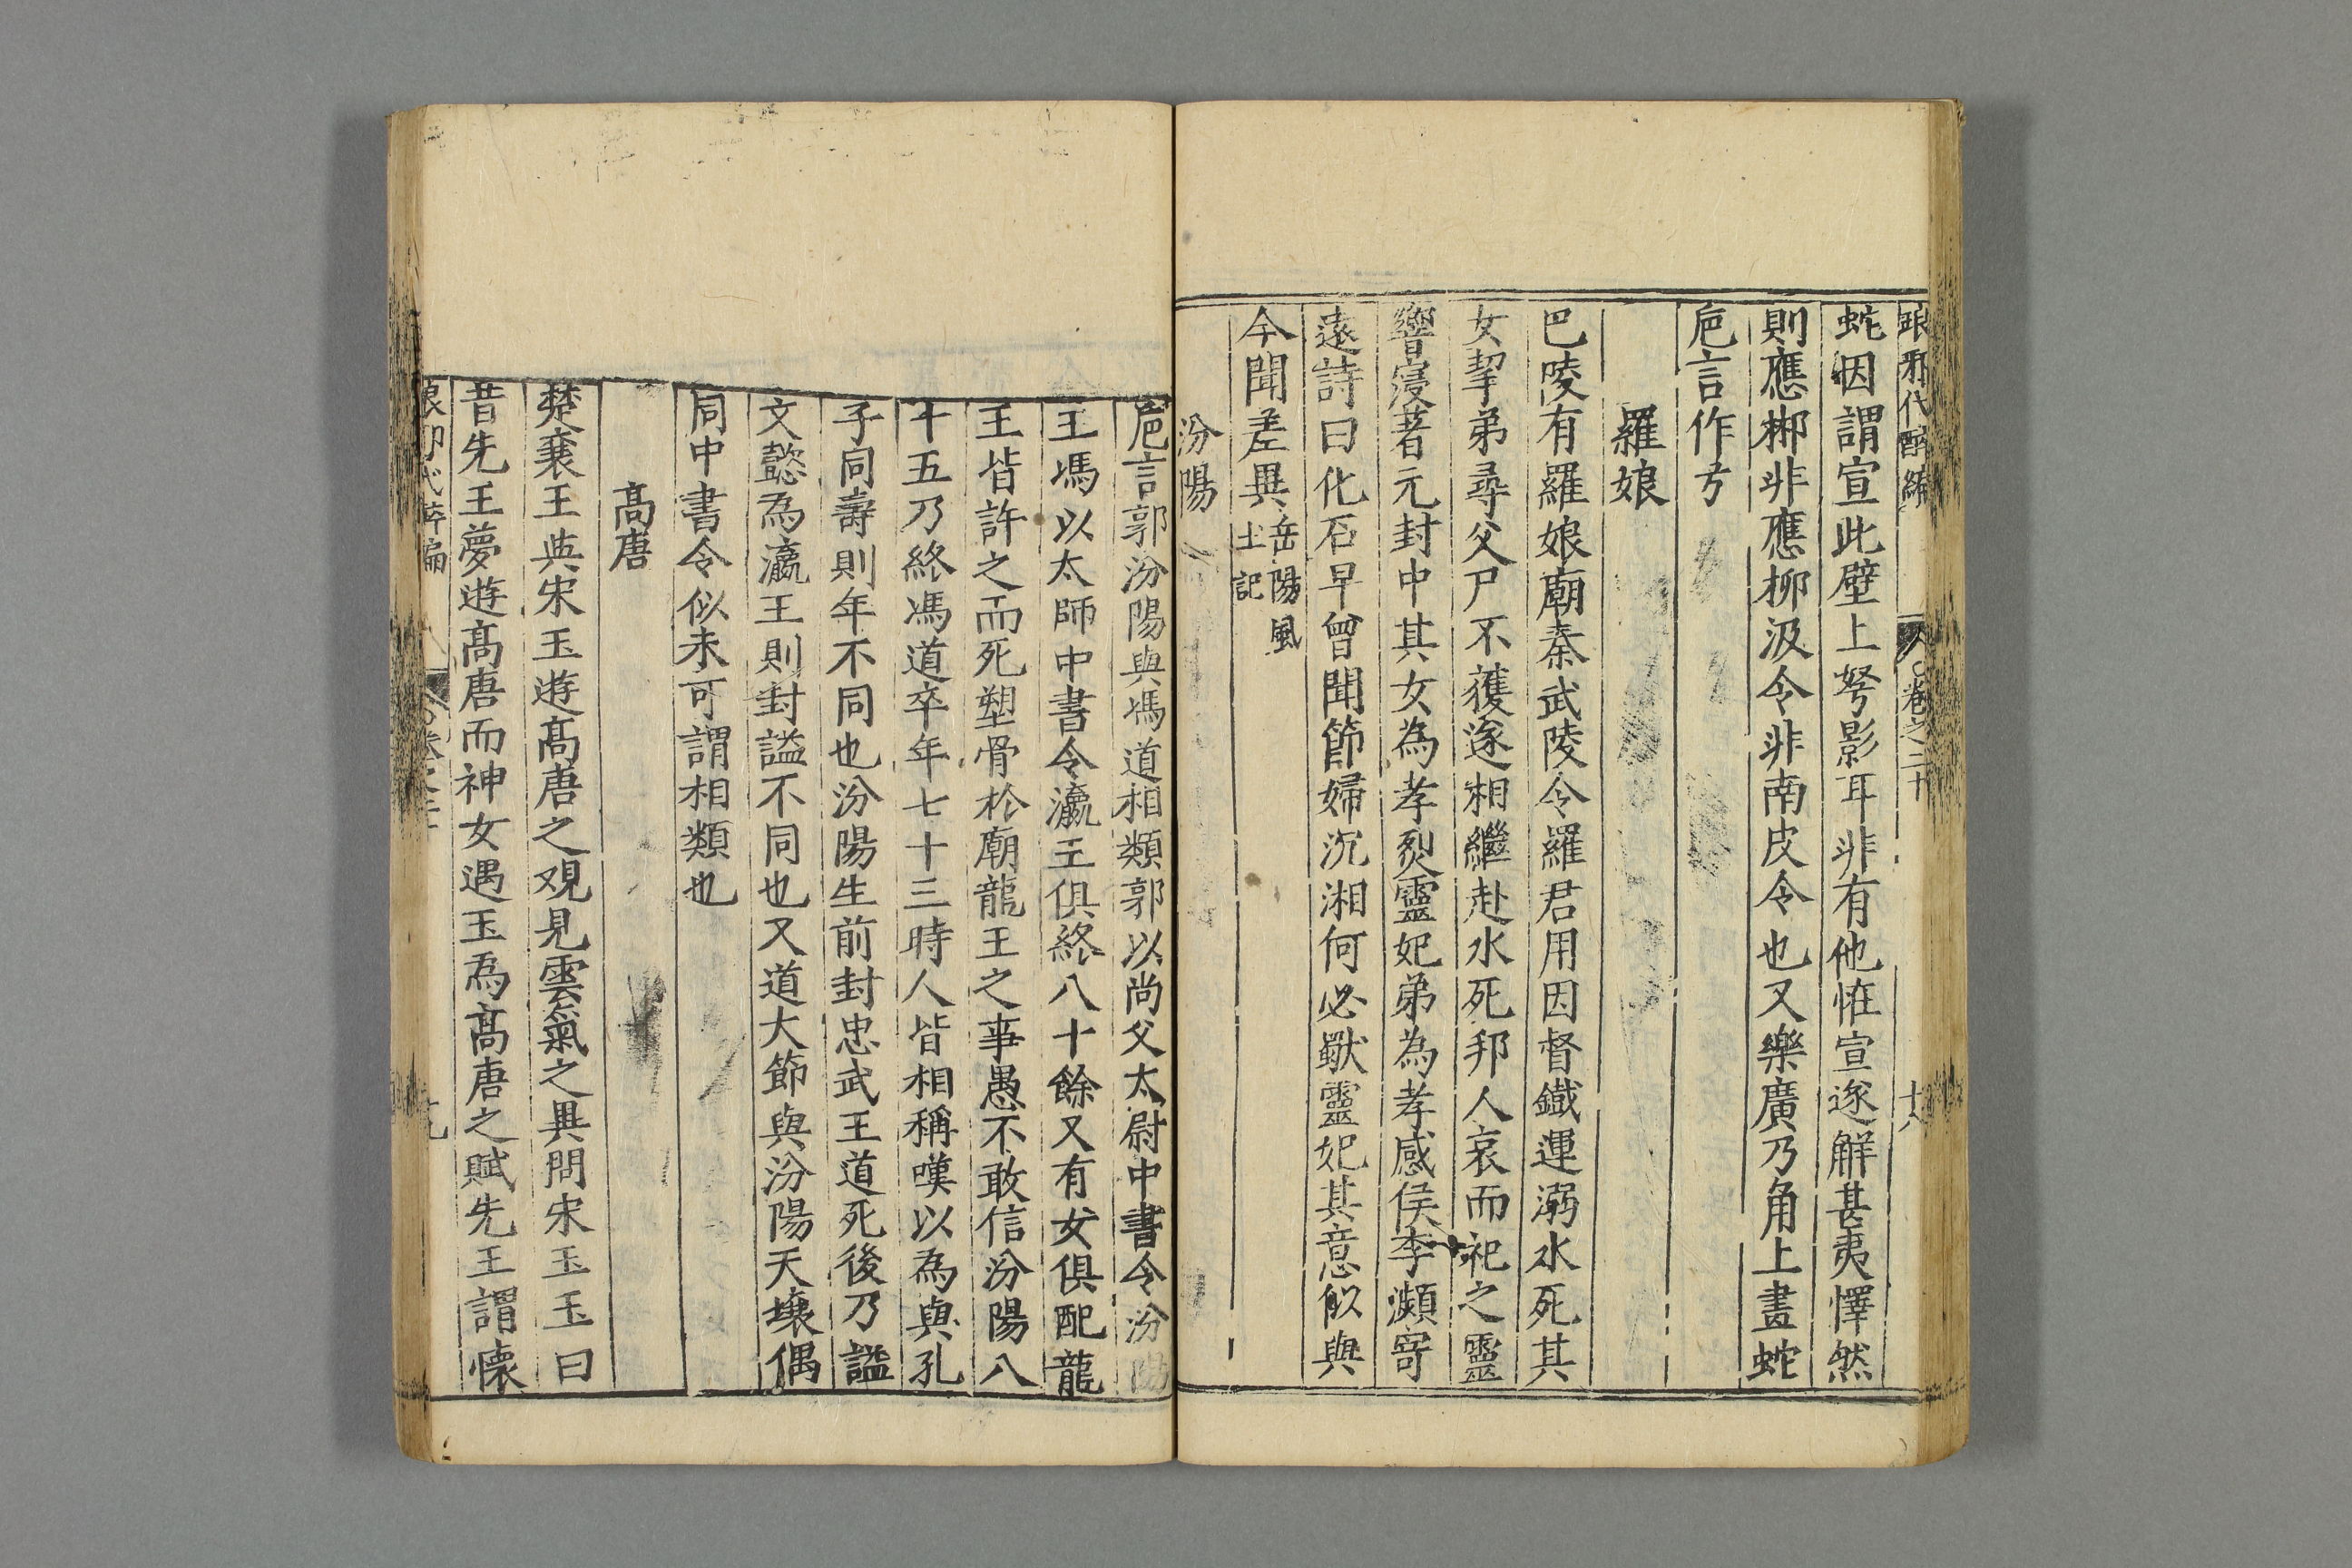 琅邪代醉編 卷之二十 十八
蛇因謂宣此壁上弩影耳非有他恠宣遂解甚夷懌然
則應郴非應柳汲令非南皮令也又樂廣乃角上畫蛇
巵言作兮
羅娘
巴陵有羅娘廟秦武陵令羅君用因督鐵運溺水死其
女挈弟尋父尸不獲遂相繼赴水死邦人哀而祀之靈
響寖著元封中其女為孝烈靈妃弟為孝感侯李瀕寄
遠詩曰化石早曾聞節婦沉湘何必獸靈妃其意似與
今聞差異岳陽風土記
汾陽
巵言郭汾陽與馮道相類郭以尚父太尉中書令汾陽
王馮以太師中書令瀛王俱終八十餘又有女俱配龍
王皆許之而死塑骨於廟龍王之事愚不敢信汾陽八
十五乃終馮道卒年七十三時人皆相稱嘆以為與孔
子同壽則年不同也汾陽生前封忠武王道死後乃謚
文懿為瀛王則封謚不同也又道大節與汾陽天壤偶
同中書令似未可謂相類也
髙唐
楚襄王與宋玉遊髙唐之觀見雲氣之異問宋玉玉曰
昔先王夢遊髙唐而神女遇玉為髙唐之賦先王謂懷